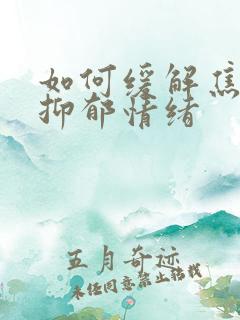 如何缓解焦
抑郁情绪
五月奇迹
未经同意禁止转载